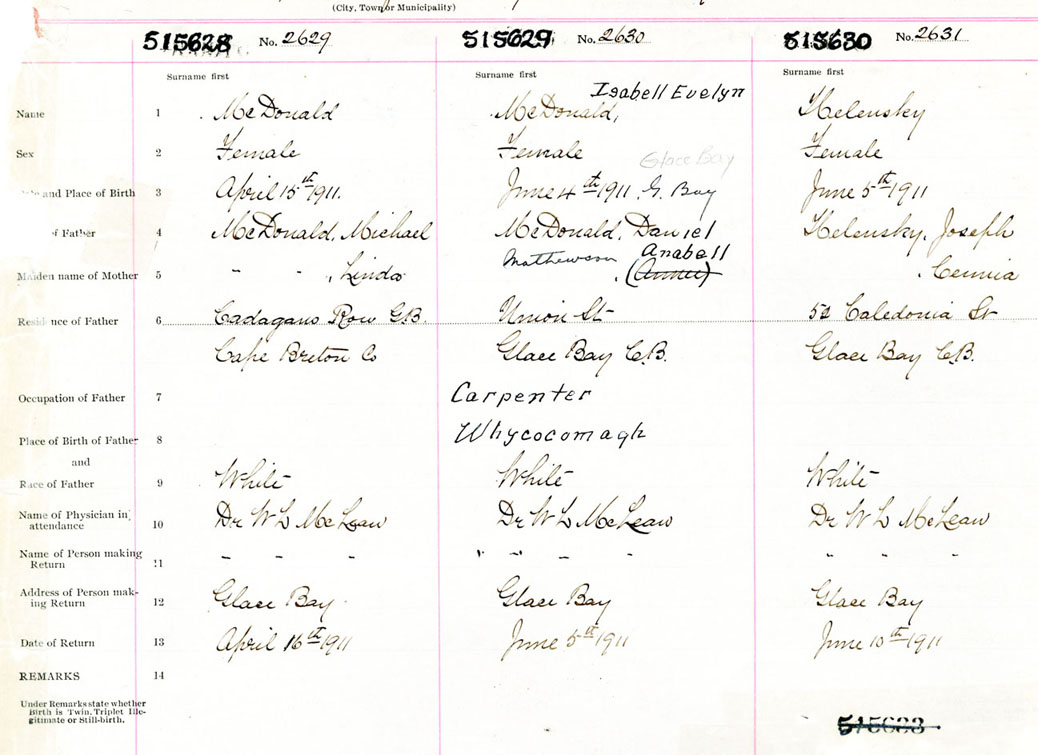 (City, Town or Municipality)
515628 No. 2629 515629 No. 2630 515630 No. 2631
Surname first Surname first Surname first
Isabell Evelyn
Name 1 McDonald McDonald, Helensky
Sex 2 Female Female Female
Glace Bay
and Place of Birth 3 April 15th 1911. June 4th 1911 G. Bay June 5th 1911
of Father 4 McDonald, Michael McDonald, Daniel Helensky, Joseph
Mathewson Anabell
Maiden name of Mother 5 " " , Linda (Annie)
Residence of Father 6 Cadagans Row G.B. Union St 52 Caledonia St
Cape Breton Co Glace Bay C.B. Glace Bay C.B.
Occupation of Father 7 Carpenter
Place of Birth of Father 8 Whycocomagh
and
Race of Father 9 White White White
Name of Physician in
attendance 10 Dr W L McLean Dr W L McLean Dr W L McLean
Name of Person making
Return 11 " " " " " " " " " "
Address of Person mak-
ing Return 12 Glace Bay Glace Bay Glace Bay
Date of Return 13 April 16th 1911 June 5th 1911 June 10th 1911
REMARKS 14
Under Remarks state whether
Birth is Twin, Triplet Ille-
gitimate or Still-birth.